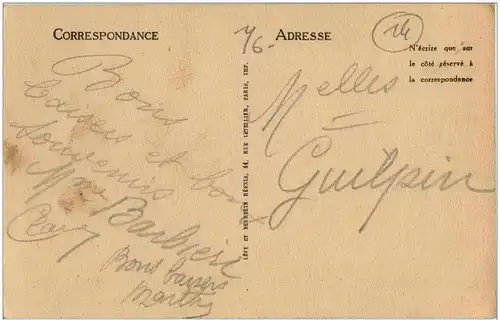 CORRESPONDANCE
Bons
baisers et bons
souvenirs
Mme Barbieri
Bons baisers
Marthe
LÉVY ET NEURDEIN RÉUNIS, 44, RUE LETELLIER, PARIS, IMP.
76-
ADRESSE
14
N'écrire que sur
le côté réservé à
la correspondance
Melles
Guilpin